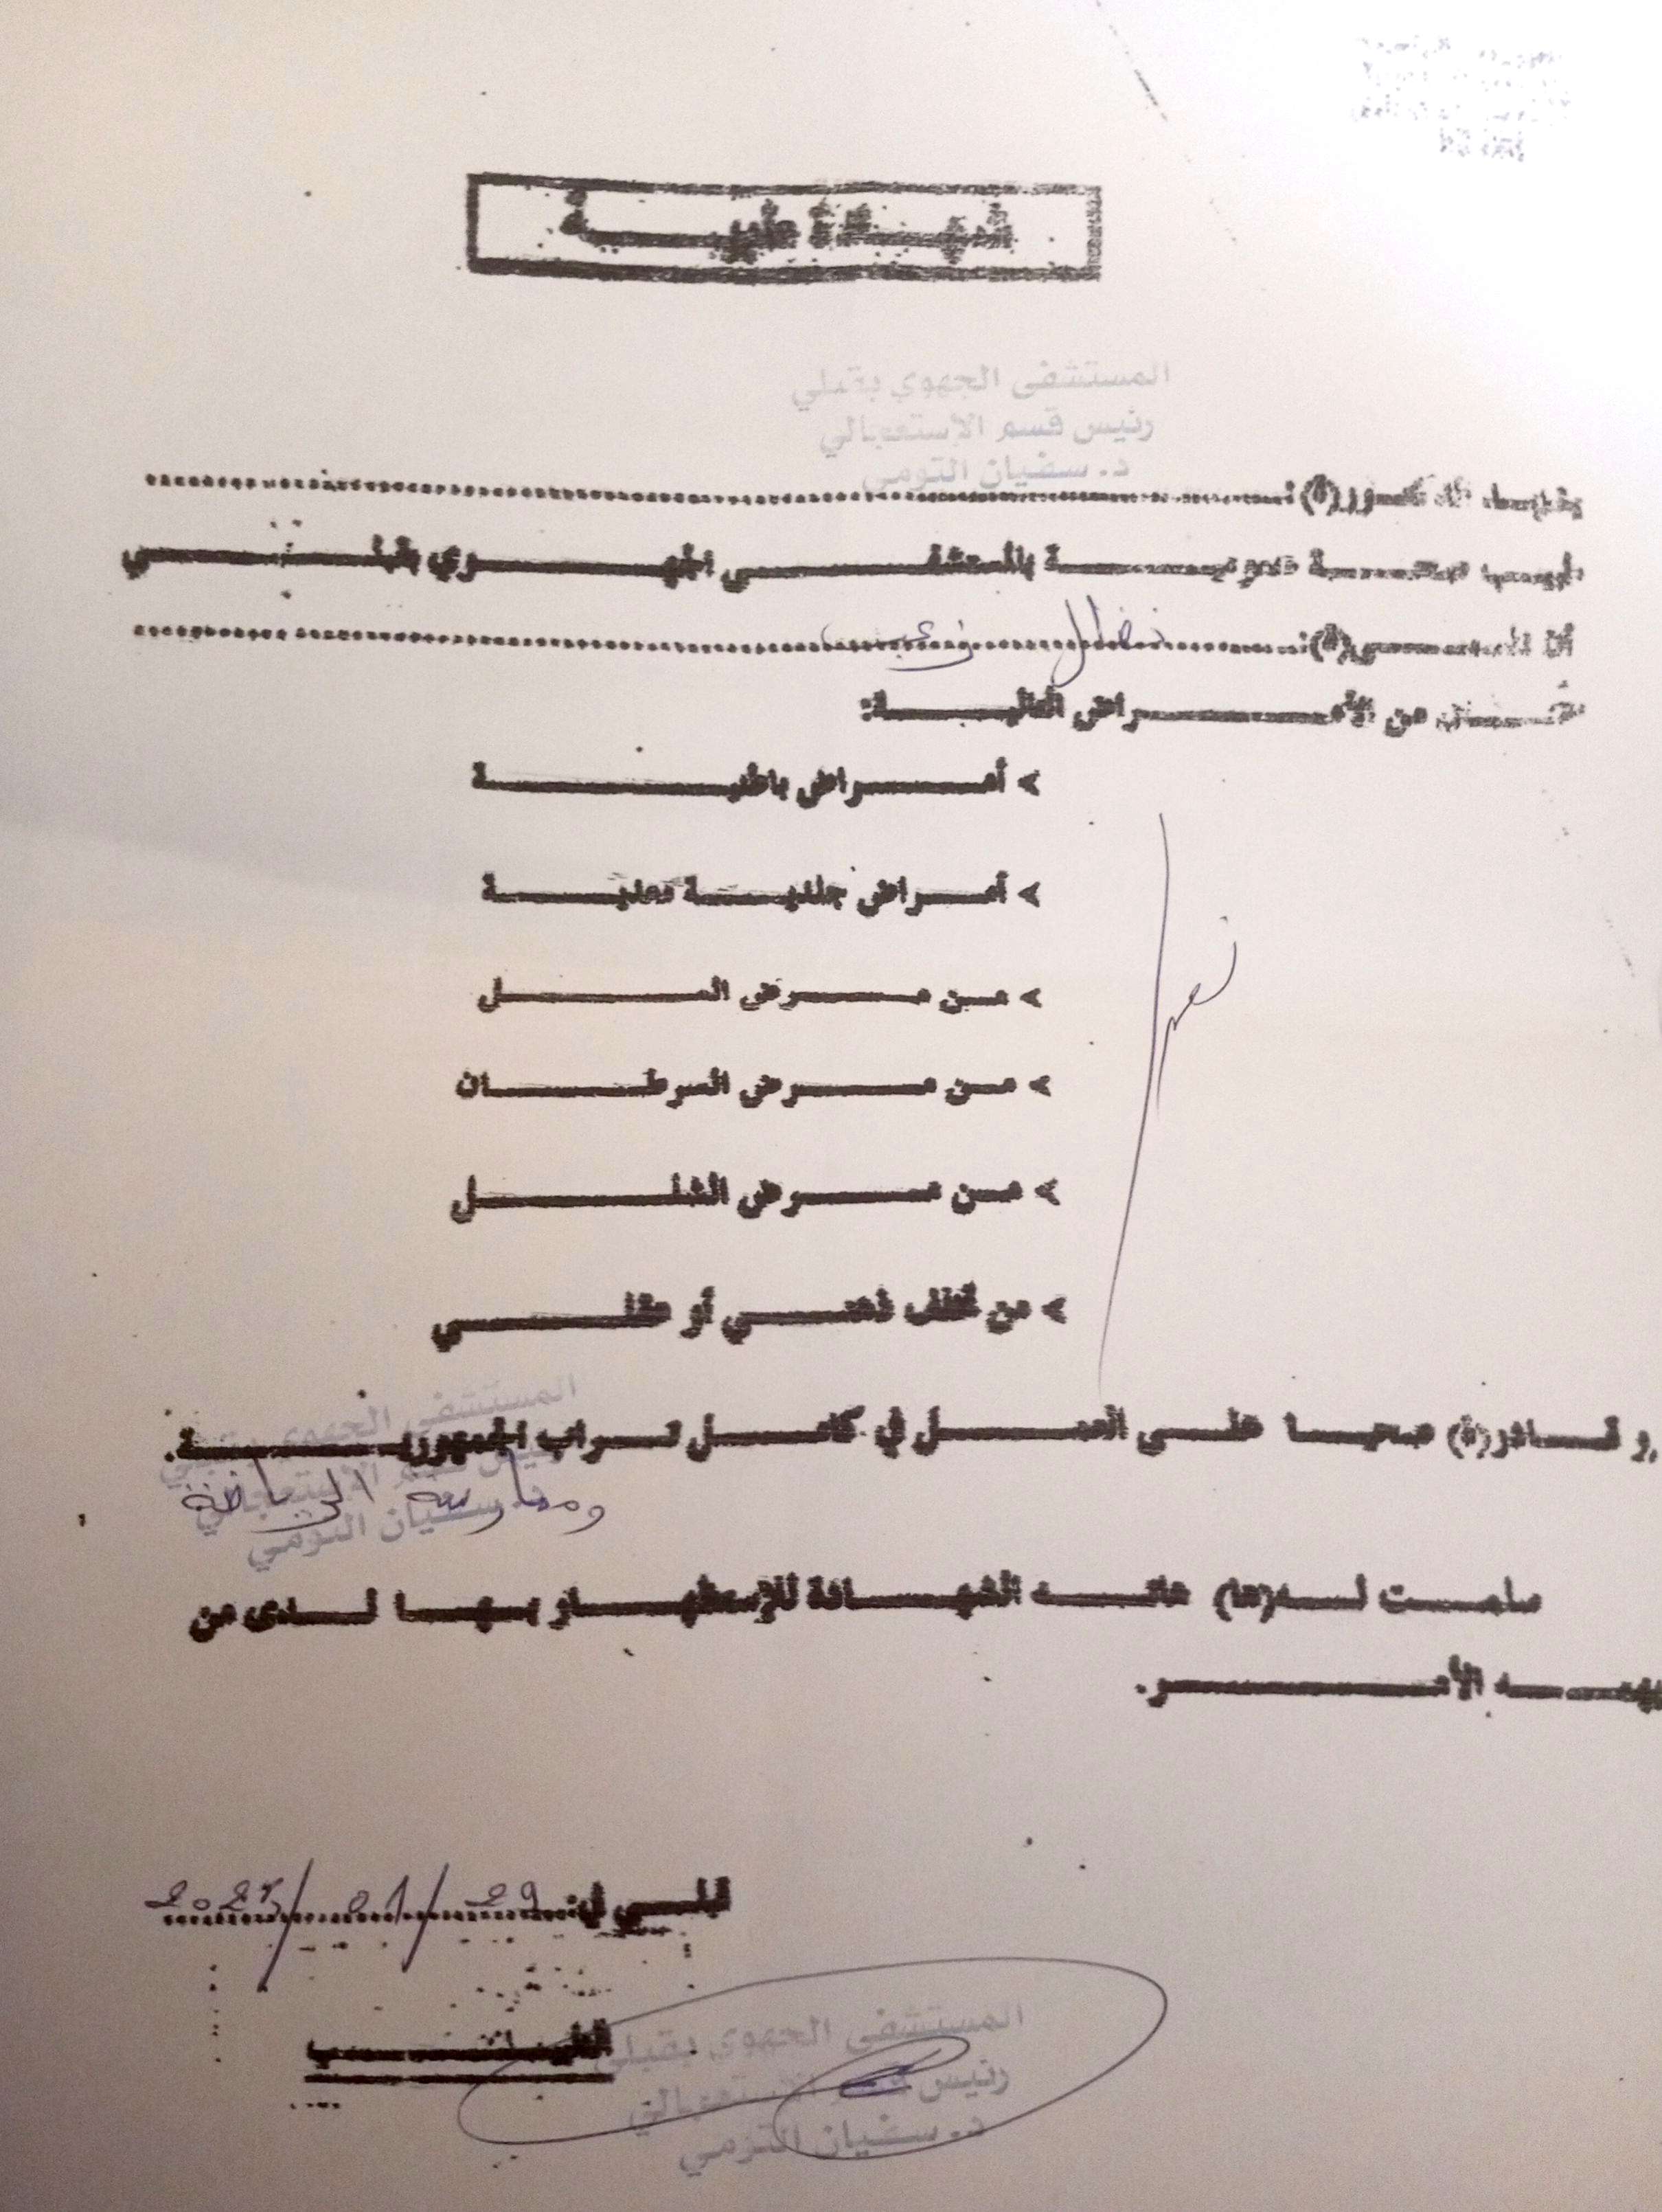 شهادة طبية
المستشفى الجهوي بقبلي
رئيس قسم الإستعجالي
د. سفيان التومي
الدكتور(ة):
بالمستشفى الجهوي بقبلي
أن (ة): نضال
من الأمراض التالية:
> أمراض باطنية
> أمراض جلدية معدية
> من مرض السل
> من مرض السرطان
> من مرض الشلل
> من تخلف ذهني أو عقلي
نعم
و قادر(ة) صحيا على العمل في كامل تراب الجمهورية.
المستشفى الجهوي بقبلي
رئيس قسم الإستعجالي
د. سفيان التومي
وممارسة الرياضة
سلمت له(ها) هاته الشهادة للإستظهار بها لدى من
يهمه الأمر.
قبلي في: 29 / 01 /
الطبيب
المستشفى الجهوي بقبلي
رئيس قسم الإستعجالي
د. سفيان التومي